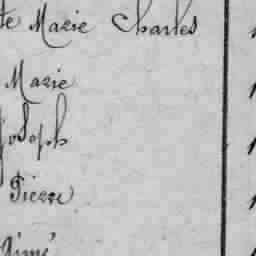 te Marie Charles
Marie
Joseph
Pierre
Aimé